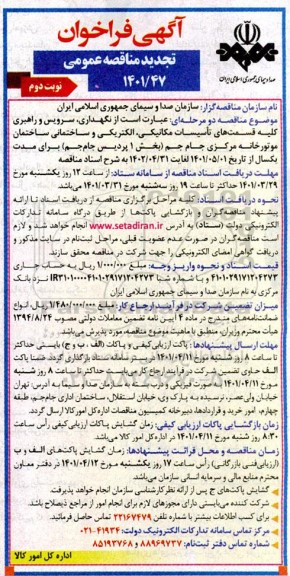 آگهی فراخوان
تجدید مناقصه عمومی
۱۴۰۱/۴۷
نوبت دوم
صدا و سیمای جمهوری اسلامی ایران
نام سازمان مناقصه‌گزار: سازمان صدا و سیمای جمهوری اسلامی ایران
موضوع مناقصه دو مرحله‌ای: عبارت است از نگهداری، سرویس و راهبری
کلیه قسمت‌های تأسیسات مکانیکی، الکتریکی و ساختمانی ساختمان
موتورخانه مرکزی جام جم (بخش ۱ پردیس جام‌جم) برای مدت
یکسال از تاریخ ۱۴۰۱/۰۵/۰۱ لغایت ۱۴۰۲/۰۴/۳۱ به شرح اسناد مناقصه
مهلت دریافت اسناد مناقصه از سامانه ستاد: از ساعت ۱۳ روز یکشنبه مورخ
۱۴۰۱/۰۳/۲۹ حداکثر تا ساعت ۱۹ روز سه‌شنبه مورخ ۱۴۰۱/۰۳/۳۱ می‌باشد
نحوه دریافت اسناد: کلیه مراحل برگزاری مناقصه از دریافت اسناد تا ارائه
پیشنهاد مناقصه‌گران و بازگشایی پاکت‌ها از طریق درگاه سامانه تدارکات
الکترونیکی دولت (ستاد) به آدرس www.setadiran.ir انجام خواهد شد و لازم
است مناقصه‌گران در صورت عدم عضویت قبلی، مراحل ثبت‌نام در سایت مذکور و
دریافت گواهی امضای الکترونیکی را جهت شرکت در مناقصه محقق سازند
قیمت اسناد و نحوه واریز وجه: مبلغ ۱/۰۰۰/۰۰۰ ریال به حساب جاری
مرکزی به نام سازمان صدا و سیمای جمهوری اسلامی ایران
میزان تضمین شرکت در فرآیند ارجاع کار: مبلغ ۱/۴۸۰/۰۰۰/۰۰۰ ریال، انواع
ضمانتنامه‌های مندرج در ماده ۴ آیین نامه تضمین معاملات دولتی مصوب ۱۳۹۴/۸/۲۴
هیأت محترم وزیران، منطبق با ماهیت موضوع مناقصه، مورد پذیرش می‌باشد.
مهلت ارسال پیشنهادها: پاکت ارزیابی کیفی و پاکات (الف - ب و ج) بایستی حداکثر
تا ساعت ۸ روز شنبه مورخ ۱۴۰۱/۰۴/۱۱ در بستر سامانه ستاد بارگذاری گردد. ضمنا پاکت
الف حاوی تضمین شرکت در فرآیند ارجاع کار می‌بایست حداکثر تا ساعت ۸ روز شنبه
مورخ ۱۴۰۱/۰۴/۱۱ به صورت فیزیکی و در بسته به سازمان صدا و سیما به آدرس: تهران
خیابان ولی عصر، نرسیده به پارک وی، خیابان استقلال، ساختمان اداری جام‌جم، طبقه
چهارم، امور خرید و قراردادها، دبیرخانه کمیسیون مناقصات اداره کل امور کالا ارسال گردد.
زمان بازگشایی پاکات ارزیابی کیفی: زمان گشایش پاکات ارزیابی کیفی رأس ساعت
۸:۳۰ روز شنبه مورخ ۱۴۰۱/۰۴/۱۱ در اداره کل امور کالا می‌باشد.
زمان مناقصه و محل قرائت پیشنهادها: زمان گشایش پاکت‌های الف و ب
(ارزیابی فنی بازرگانی) رأس ساعت ۱۷ روز یکشنبه مورخ ۱۴۰۱/۰۴/۱۲ در دفتر معاون
محترم منابع مالی و سرمایه انسانی سازمان می‌باشد.
گشایش پاکت‌های ج پس از ارائه نظر کارشناسی سازمان انجام خواهد پذیرفت.
شرکت کننده می‌بایستی دارای مجوزهای لازم برای انجام امور از مراجع ذیصلاح باشد.
برای کسب اطلاعات بیشتر با شماره تلفن ۲۲۱۶۷۴۷۹ تماس حاصل فرمائید.
مرکز تماس سامانه تدارکات الکترونیک دولت: ۴۱۹۳۴-۰۲۱
شماره تماس دفتر ثبت‌نام: ۸۸۹۶۹۷۳۷ و ۸۵۱۹۳۷۶۸
اداره کل امور کالا